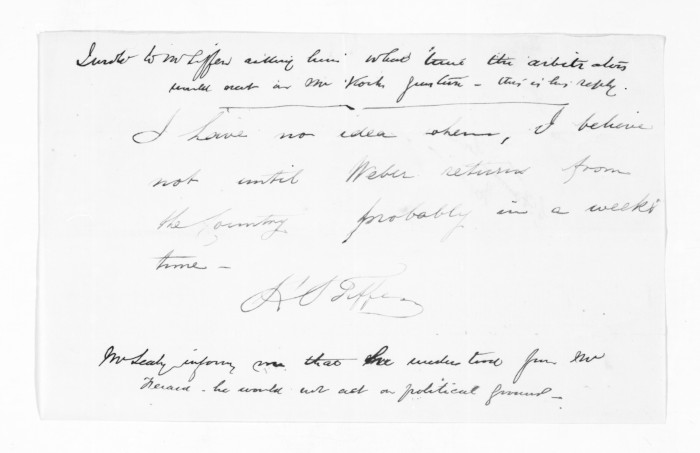 I wrote to Mr Tiffen asking him what time the arbitrators
would act in Mr Yorks question - this is his reply.
I have no idea when, I believe
not until Weber returns from
the Country probably in a week's
time -
H S Tiffen
Mr Sealy informs me that he understood from Mr
he would not act on political ground -